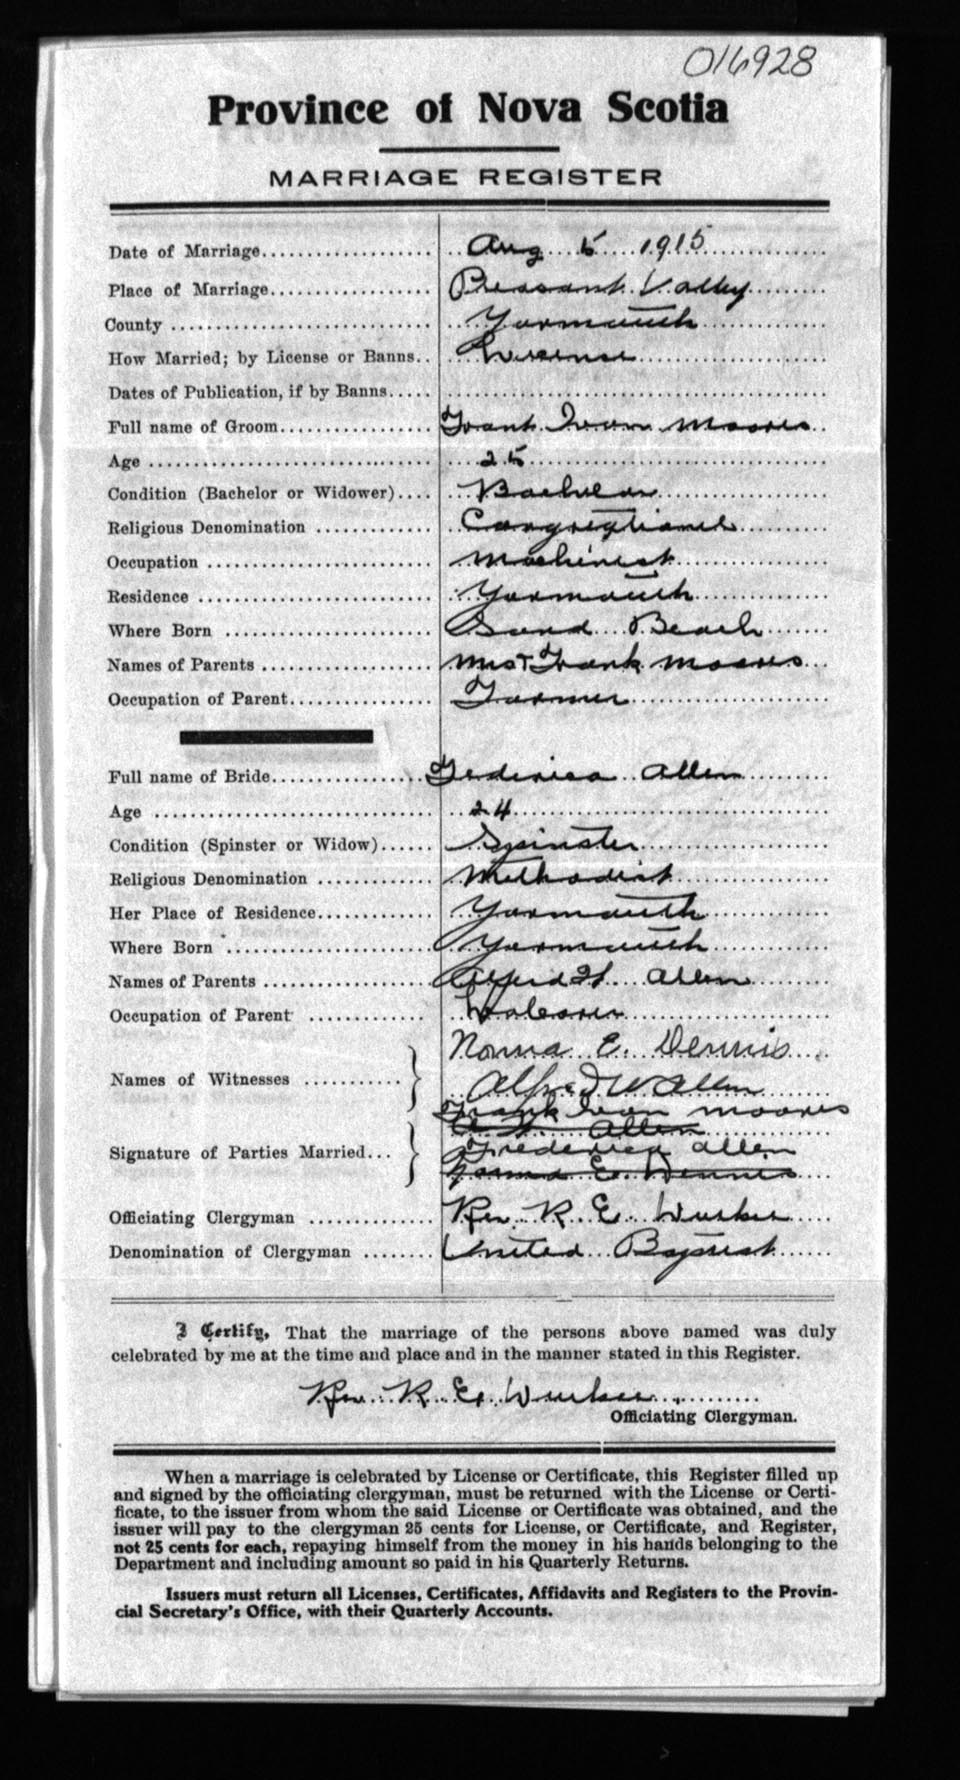 016928
Province of Nova Scotia
MARRIAGE REGISTER
Date of Marriage.................... Aug 5 1915
Place of Marriage.................. Pleasant Valley
County .............................. Yarmouth
How Married; by License or Banns.. License
Dates of Publication, if by Banns.....
Full name of Groom................ Frank Ivan Moores
Age .............................. 25
Condition (Bachelor or Widower).... Bachelor
Religious Denomination ............ Congregtional
Occupation ........................ Machinist
Residence ......................... Yarmouth
Where Born ...................... Sand Beach
Names of Parents .................. Frank Moores
Occupation of Parent................ Farmer
Full name of Bride................ Federica Allen
Age .............................. 24
Condition (Spinster or Widow)...... Spinster
Religious Denomination ............ Methodist
Her Place of Residence............. Yarmouth
Where Born ...................... Yarmouth
Names of Parents .................. Allen
Occupation of Parent .............
Names of Witnesses ........... Norma E. Dennis
Alfred W Allen
Frank Ivan Moores
Allen
Signature of Parties Married... Frederica Allen
Norma E. Dennis
Officiating Clergyman ............. Rev. R. E.
Denomination of Clergyman ........ United Baptist
I Certify, That the marriage of the persons above named was duly
celebrated by me at the time and place and in the manner stated in this Register.
Rev. R. E.
Officiating Clergyman.
When a marriage is celebrated by License or Certificate, this Register filled up
and signed by the officiating clergyman, must be returned with the License or Certi-
ficate, to the issuer from whom the said License or Certificate was obtained, and the
issuer will pay to the clergyman 25 cents for License, or Certificate, and Register,
not 25 cents for each, repaying himself from the money in his hands belonging to the
Department and including amount so paid in his Quarterly Returns.
Issuers must return all Licenses, Certificates, Affidavits and Registers to the Provin-
cial Secretary's Office, with their Quarterly Accounts.